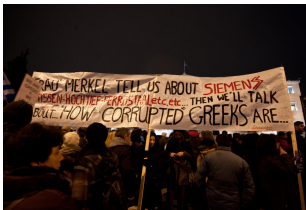 FRAU MERKEL TELL US ABOUT SIEMENS
THYSSEN-HOCHTIEF-FERROSTAAL etc.etc... THEN WE'LL TALK
ABOUT "HOW CORRUPTED" GREEKS ARE...